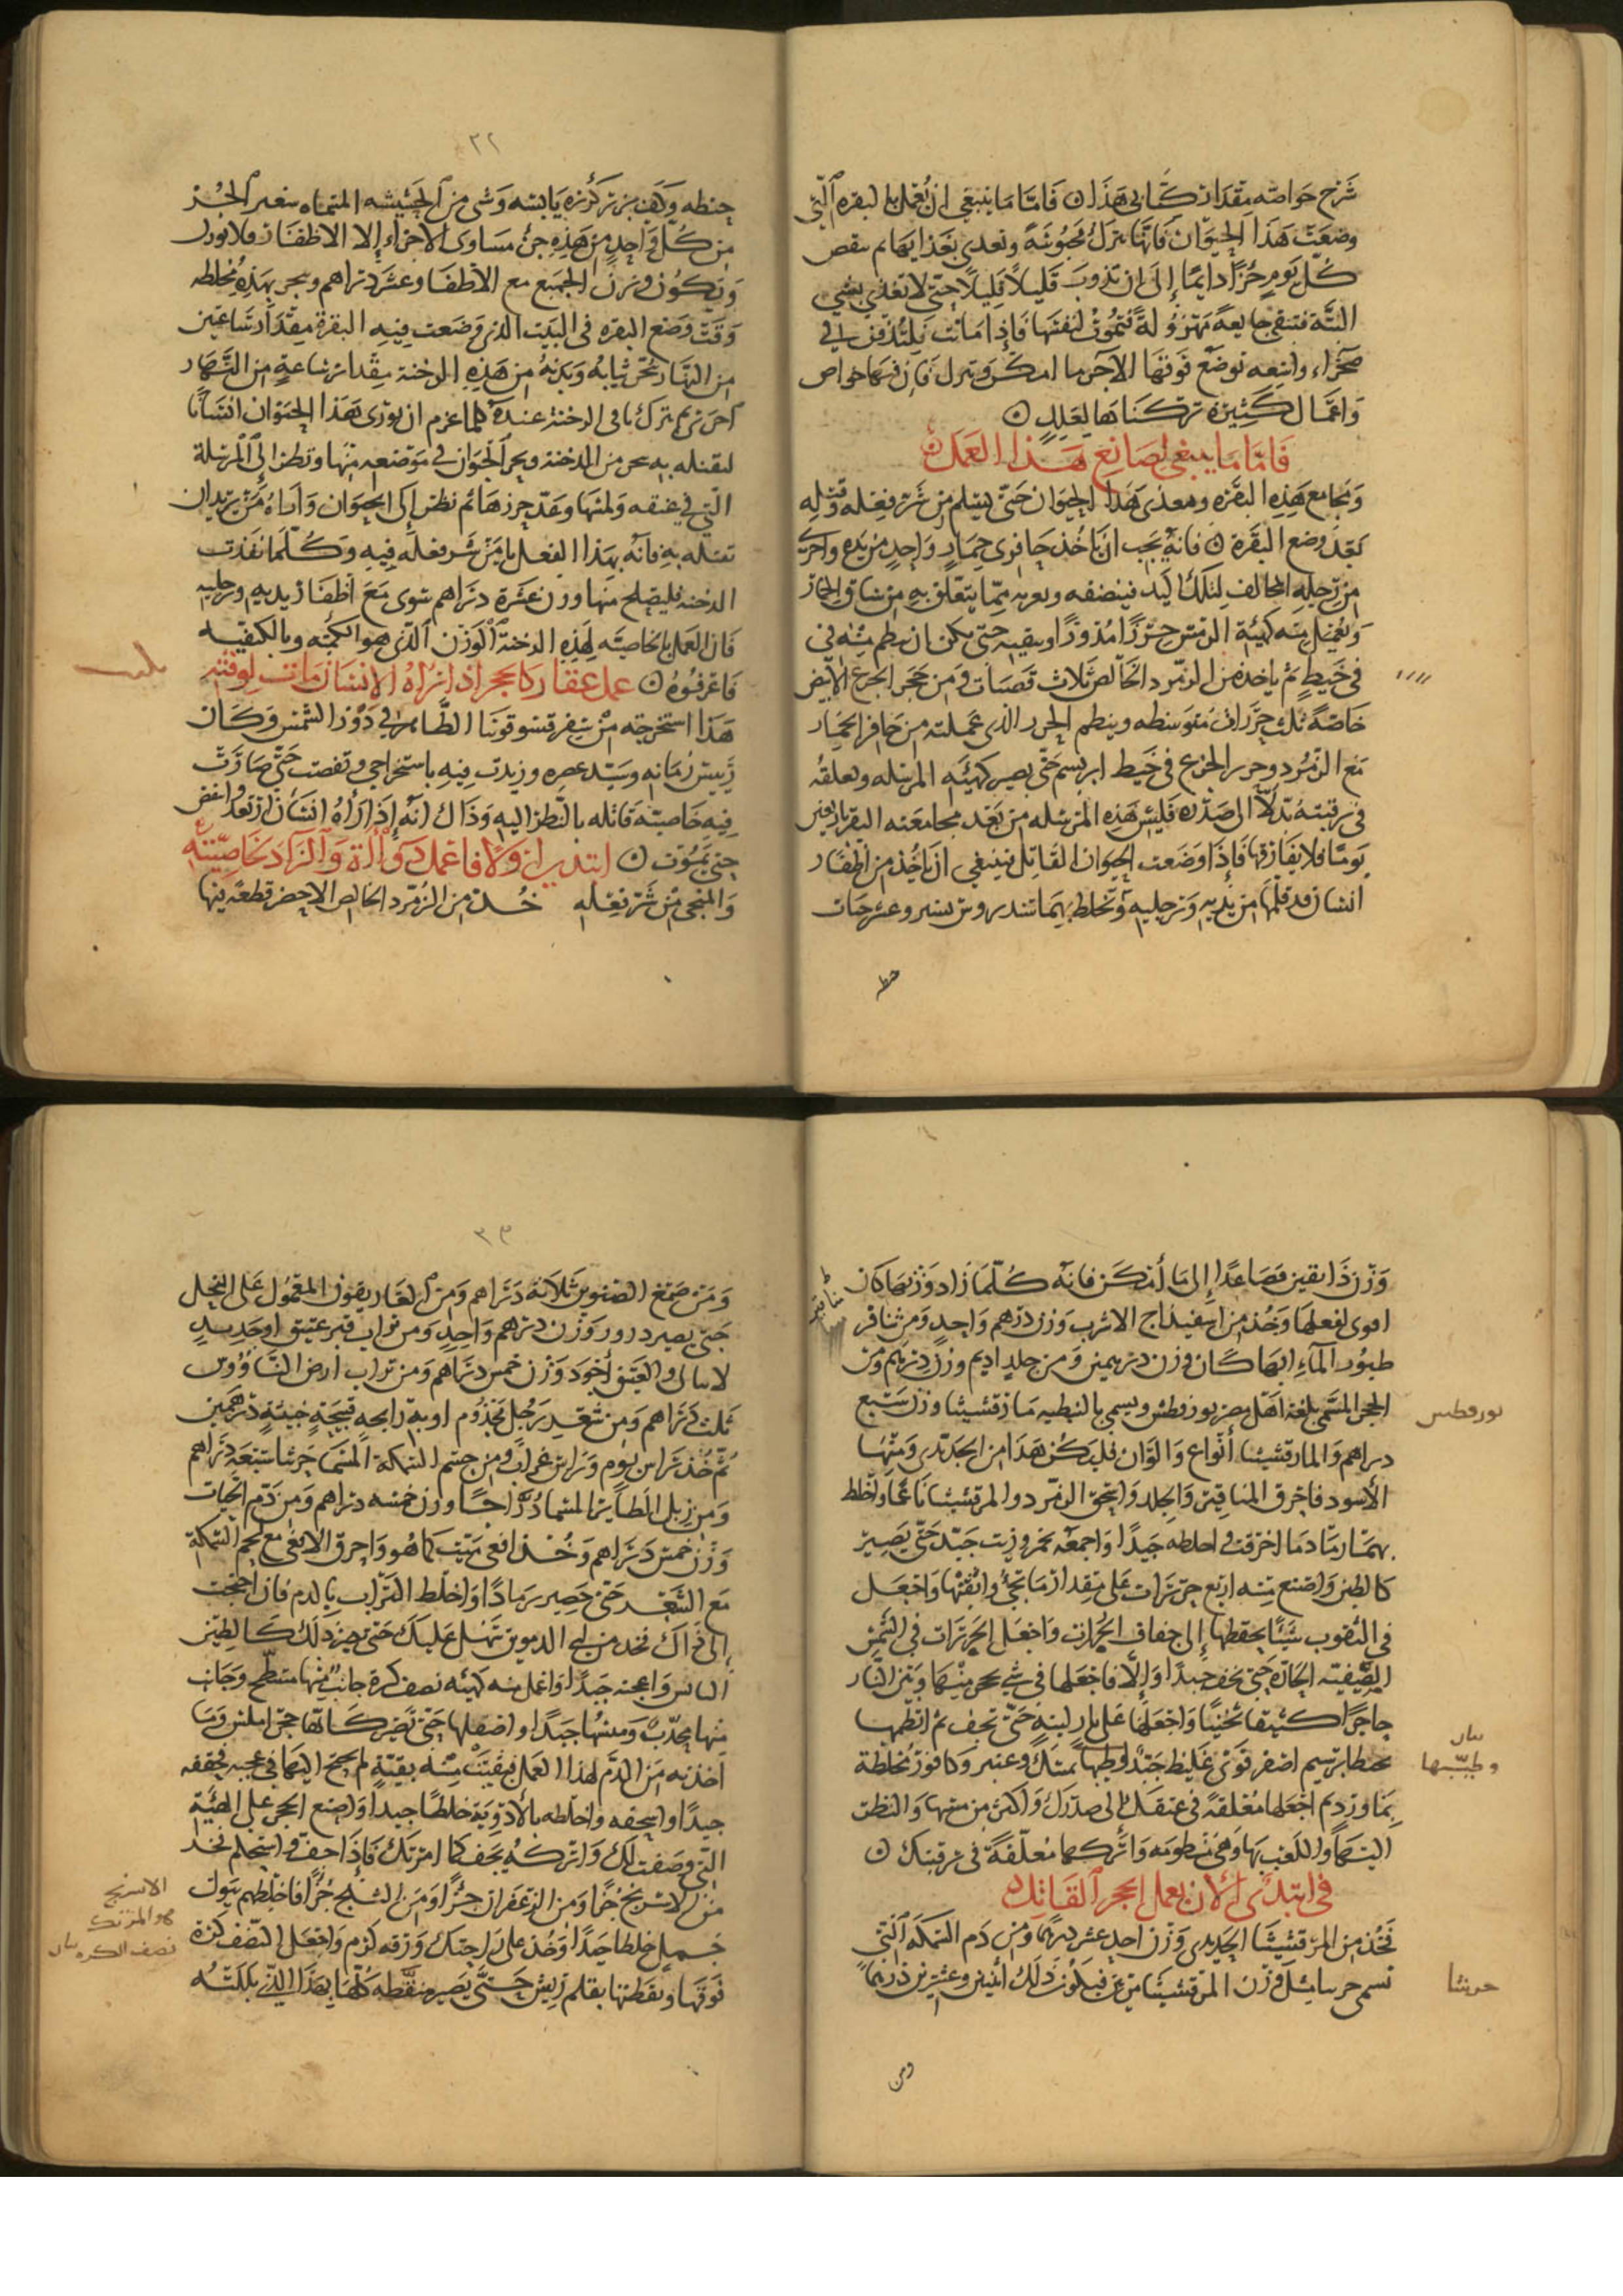 شرح خواصه مقدار كتابى هذا ن فاما ما ينبغي ان تعمل بالبقرة التي
وضعت هذا الحيوان فانها تترك محبوسة وتغذى بغذايها ثم ينقص
كل يوم جزءًا دايمًا إلى ان تذوب قليلًا قليلًا حتى لا تغذى بشي
البتة فتبقى جايعة مهزولة فتموت لنفسها فإذا ماتت فلتدفن في
صحراء واسعه توضع فوقها الآجر ما امكن وتترك فان فيها خواص
واعمال كثيرة تركناها لعلل ن
فاما ما ينبغي لصانع هذا العمل ن
ومجامع هذه البقرة ومغذى هذا الحيوان حتى يسلم من شر فعله وقتله
بعد وضع البقرة ن فانه يجب ان ياخذ حافري حمار واحد من يده واخر
من رجله المخالف لتلك اليد فينضفه ويعريه مما يتعلق به من ساق الحمار
ويعمل منه كهيئة الرمس خرزًا مدورًا ويثقبه حتى يمكن ان ينظم منه في
في خيط ثم ياخذ من الزمرد الخالص ثلاث قصبات ومن حجر الجزع الأبيض
خاصة ثلث خرزات متوسطه وينظم الخرز الذي عملته من حافر الحمار
مع الزمرد وخرز الجزع في خيط ابريسم حتى يصير كهيئة المرسله ويعلقه
في رقبته تدلّا الى صدره فليس هذه المرسله من بعد مجامعته البقرة باربعين
يومًا فلا يفارقها فإذا وضعت الحيوان القاتل فينبغي ان ياخذ من أظفار
انسان قد قلمها من يديه ورجليه وتخلط بهما سندروس يسير وعشر حبات
حنطه
٣٢
حنطه وكف بزر كزبره يابسه وشى من الحشيشه المتماه
من كل واحد من هذه جزء مساوى الاجزاء إلا الاظفار فلا يوزن
ويكون وزن الجميع مع الاظفار عشر دراهم ويبخر بهذه مخلطه
وقت وضع البقره في البيت الذي وضعت فيه البقرة مقدار ساعتين
من النهار تبخر ثيابه وبدنه من هذه الدخنة مقدار ساعة من النهار
اخرى ثم يترك باقى الدخنة عنده كلما عزم ان يورى هذا الحيوان انسانا
ليقتله به بخر من الدخنة وبخر الحيوان في موضعه منها ونظر إلى المرسلة
التي في عنقه ولمسها وعد خرزها ثم نظر إلى الحيوان واراه من يريد ان
يقتله به فانه بهذا الفعل يامن شر فعله فيه وكلما نفدت
الدخنة فليصلح منها وزن عشرة دراهم سوى مع أظفار يديه ورجليه
فان العمل بالخاصيته لهذه الدخنة الوزن الذي هو الكميّه وبالكيفيّه
فاعرفوه ن عمل عقار كالحجر اذا راه الانسان مات لوقته
هذا استخرجه من سفر قسوقوبنا الطاهر في دور الشمس وكان
رئيس زمانه وسيد عصره وزيدت فيه باستخراجي ونقصت حتى صارت
فيه خاصيته قاتله بالنظر اليه وذاك انّه إذا رأه انسان ارتعد وانتفض
حتى يموت ن ابتدى اولا فاعمل دواه والزاد بخاصيته
والمنجى من شر فعله خذ من الزمرد الخالص الاخضر قطعة فيها
وزن دانقين فصاعدًا إلى ما أمكن فانه كلما زاد وزنها كان
اقوى لفعلها وخذ من اسفيذاج الاسرب وزن درهم واحد ومن مناقر
طيور الماء ايها كان وزن درهمين ومن جلد اديم وزن درهم ومن
الحجر المسمى بلغة اهل مصر بورقطس ويسمى بالنبطيه مارقشيثا وزن سبع
دراهم والمارقشيثا أنواع والوان فليكن هذا من الحديدى ومنها
الأسود فاحرق المناقير والجلد واسحق الزمرد والمرقشيثا ناعمًا واخلط
بهما رماد ما احرقت واخلطه جيدًا واجمعه بخمر وزيت جيد حتى يصير
كالطين واصنع منه اربع خرزات على مقدار ما تجئ واثقبها واجعل
في الثقوب شيئًا يحفظها إلى جفاف الخرزات واجعل الخرزات في الشمس
الصيفية الحارة حتى تجف جيدًا وإلا فاجعلها في شي يحجر بينها وبين النار
حاجزًا كثيفًا ثخينًا واجعلها على نار لينة حتى تجف ثم انظمها
بخيط ابريسم اصفر قوى غليظ جيد وطبها بمسك وعنبر وكافور مخلطة
بماورد ثم اجعلها معلقة في عنقك إلى صدرك واكثر من مسها والنظر
اليها واللعب بها وهي منظومه واتركها معلقة في رقبتك ن
في ابتدئ الان بعمل الحجر القاتل ن
فخذ من المرقشيثا الحديدى وزن احد عشر درهمًا ومن دم السمكة التي
تسمى حرسا مثل وزن المرقشيثا مرتين فيكون ذلك اثنين وعشرين درهمًا
ومن
مناقير
بورقطس
بيان
وطيّبها
حرشا
٣٣
ومن صمغ الصنوبر ثلاثة دراهم ومن العاريقون المحمول على النخل
حتى يصير درور وزن درهم واحد ومن تراب قبر عتيق او حديد
لا تبالى والعتيق أجود وزن خمس دراهم ومن تراب ارض الناووس
ثلث دراهم ومن شعر رجل مجذوم او به رايحة قبيحة خبيثة درهمين
ثم خذ راس بوم وراس غراب ومن جسم السمكة المسما حرشا سبعة دراهم
ومن زبل الطاير المسما درّاجًا وزن خمسة دراهم ومن دم الحيات
وزن خمس دراهم وخذ افعى ميت كما هو واحرق الافعى مع لحم السمكة
مع الشعر حتى تصير رمادًا واخلط التراب بالدم فان احتجت
إلى ذاك فخذ من اي الدموين تهل عليك حتى يصير ذلك كالطين
اليابس واعجنه جيدًا واعمل منه كهيئه نصف كرة جانب منها مسطح وجانب
منها محدب ومسها جيدًا واصقلها حتى تصير كانها حجر املس وما
اخذته من الدم لهذا العمل فبقيت منه بقية لم يحتج اليها في عجنه فجففه
جيدًا واسحقه واخلطه بالأدوية خلطًا جيدا واصنع الحجر على الهيئة
التي وصفت لك واتركه يجف كما امرتك فإذا جف واستحكم فخذ
من الاسرنج جزءًا ومن الزعفران جزءًا ومن الشيح جزءًا فاخلطهم ببول
جمل خلطا جيدًا وخذ على راحتك ورقه كرم واجعل النصف كرة
فوقها ونقطتها بقلم ريش حتى يصير منقطه كلها بهذا الذي بللته
الاسرنج
هو المرتك
نصف الكره بيان